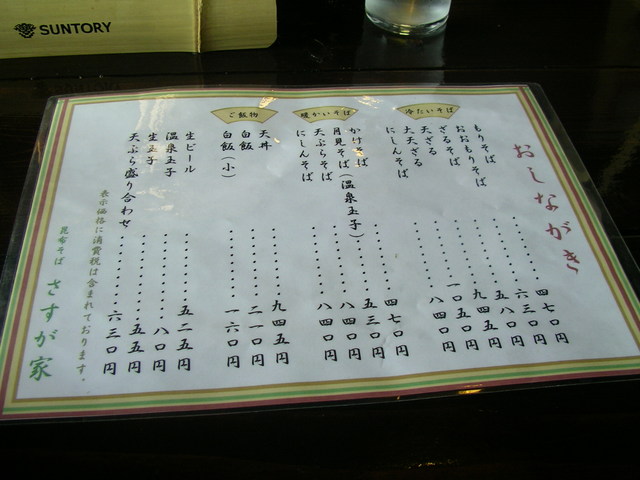 SUNTORY
おしながき
冷たいそば
もりそば・・・・・・・・・四七〇円
おおもりそば・・・・・・・・・六三〇円
ざるそば・・・・・・・・・五八〇円
天ざる・・・・・・・・・九四五円
大天ざる・・・・・・・・・一〇五〇円
にしんそば・・・・・・・・・八四〇円
暖かいそば
かけそば・・・・・・・・・四七〇円
月見そば(温泉玉子)・・・・・・五三〇円
天ぷらそば・・・・・・・・・八四〇円
にしんそば・・・・・・・・・八四〇円
ご飯物
天丼・・・・・・・・・九四五円
白飯・・・・・・・・・二一〇円
白飯(小)・・・・・・・・・一六〇円
生ビール・・・・・・・・・五二五円
温泉玉子・・・・・・・・・八〇円
生玉子・・・・・・・・・五五円
天ぷら盛り合わせ・・・・・・・・・六三〇円
表示価格に消費税は含まれております。
昆布そば さすが家